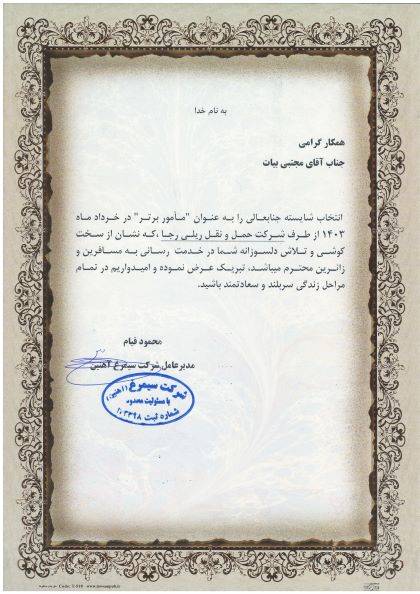 به نام خدا
همکار گرامی
جناب آقای مجتبی بیات
انتخاب شایسته جنابعالی را به عنوان "مأمور برتر" در خرداد ماه
۱۴۰۳ از طرف شرکت حمل و نقل ریلی رجا ،که نشان از سخت
کوشی و تلاش دلسوزانه شما در خدمت رسانی به مسافرین و
زائرین محترم میباشد، تبریک عرض نموده و امیدواریم در تمام
مراحل زندگی سربلند و سعادتمند باشید.
محمود قیام
مدیرعامل شرکت سیمرغ آهنین
شرکت سیمرغ (آهنین)
با مسئولیت محدود
شماره ثبت